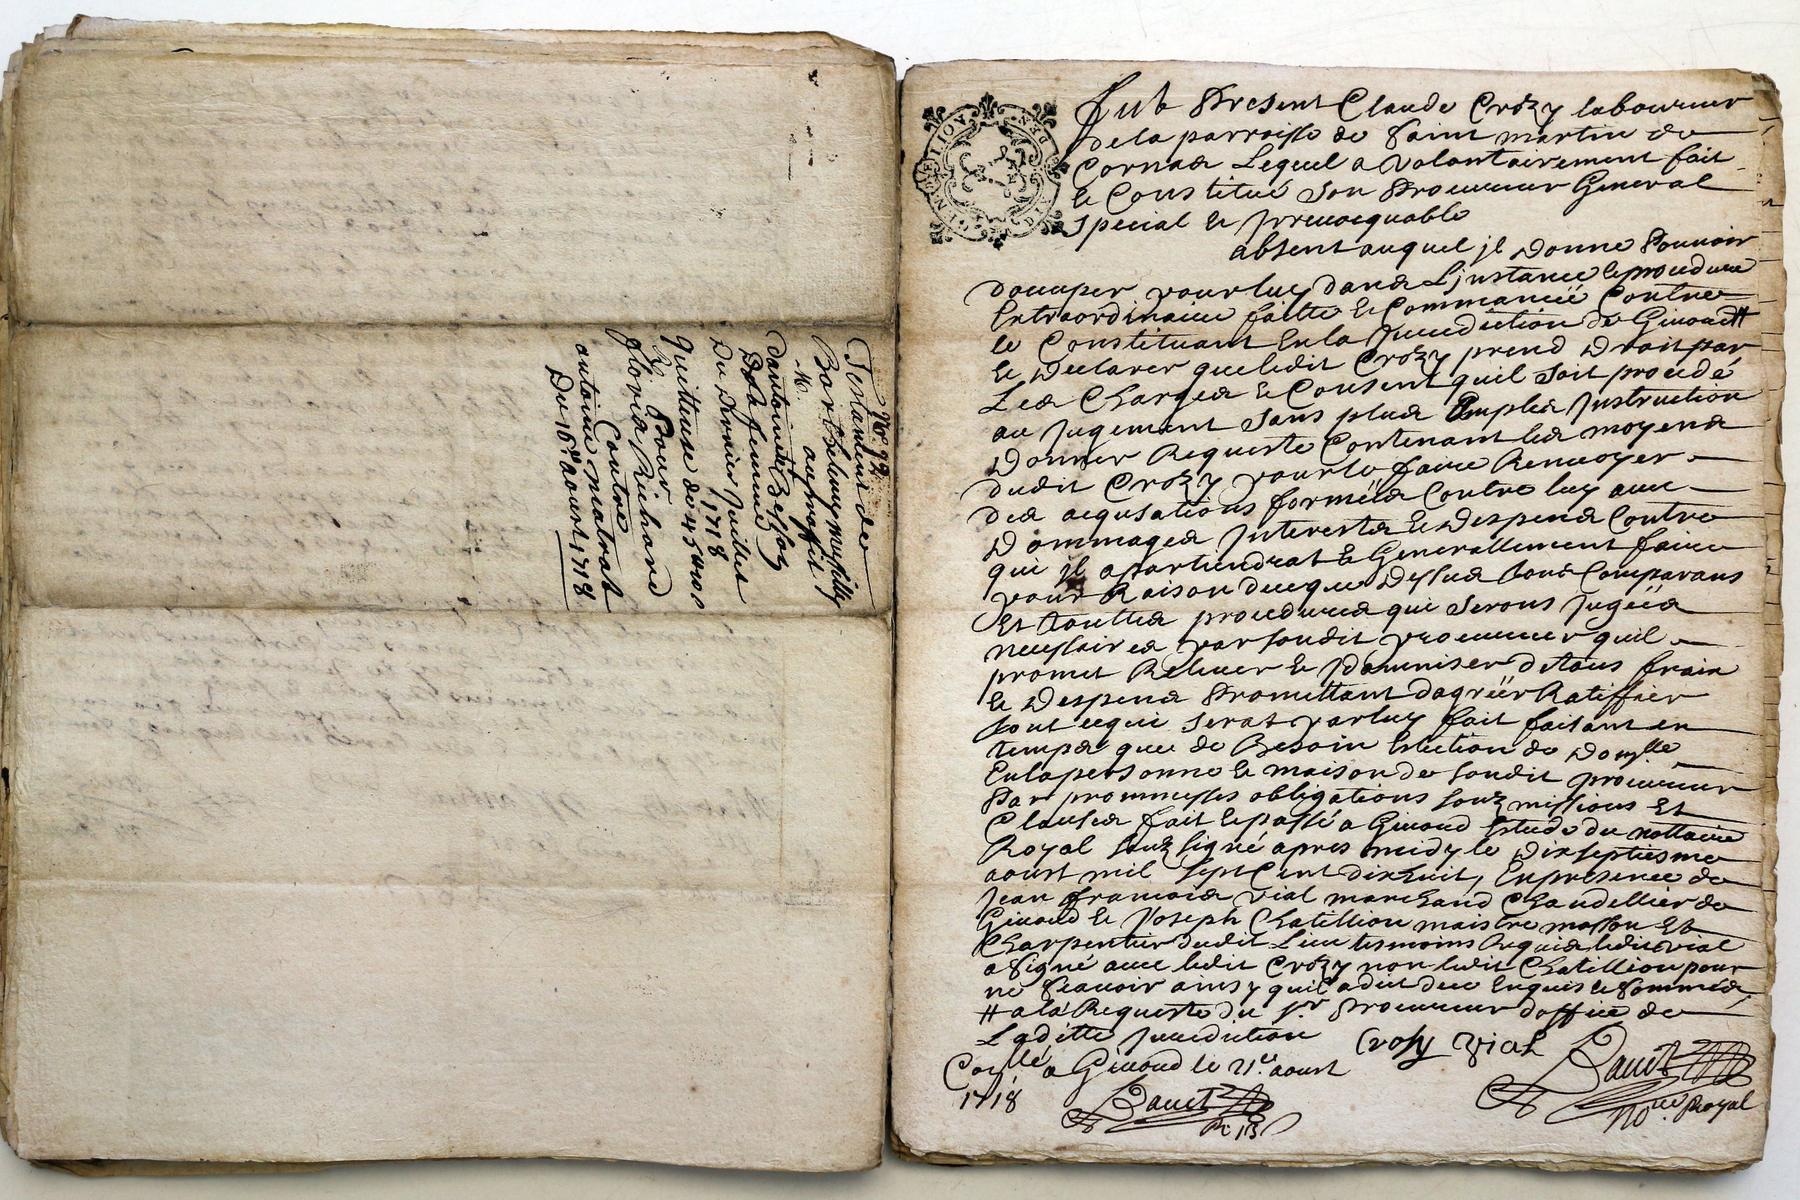 No. 92
Testament de
Barthelemy
M. au proffit
d'antoinette Bessoy
Dela femme
Du dernier Juillet
1718
Quittence de 45 #
Pour
floria Richard
Contre
antoine matrat
Du 16e aoust 1718
GEN DE LION
Fut Present Claude Crozy laboureur
de la parroisse de Saint martin de
Cornas Lequel a volontairement fait
et Constitué son Procureur General
special et Irrevocquable
absent auquel jl Donne Pouvoir
doccuper pour luy dans L'jnstance et procedure
Extraordinaire faitte et Commancéé Contre
le Constituant En la Jurediction de Givord #
et Declarer que ledit Crozy prend Droit par
Les Charges et Consent quil soit procedé
au jugement sans plus Ample Jnstruction
Donner Requeste Contenant les moyens
dudit Crozy pour le faire Renvoyer
des acqusations forméés Contre luy avec
Dommages Jnterests et Despens Contre
qui jl apartiendrat Et Generallement faire
pour Raison de ce que Dessus tous Comparans
Et touttes procedures qui serons Jugéés
necessaires par sondit procureur quil
promet Relever et Jdamniser de tous frais
et Despens Promettant dagréér Ratiffier
tout ce qui serat par luy fait faisant en
temps que de Besoin Election de Domlle
En la personne et maison de sondit procureur
Par promesses obligations souzmissions Et
Clauses fait et passé a Givord Estude du nottaire
Royal souzsigné apres midy le Dixseptiesme
aoust mil sept Cent dixhuit, En presence de
Jean francois vial marchand Chandellier de
Givord et Joseph Chatillion maistre masson Et
Charpentier dudit Lieu tesmoins Requis ledit vial
a signé avec ledit Crozy non ledit Chatillion pour
ne sçavoir ainsy quil a dit de ce Enquis et sommés
# a la Requeste du sr Procureur doffice de
Laditte Jurediction
Crosy vial
Collé a Givord le 21e aoust
1718
Bauet
Bauet
Nore Royal